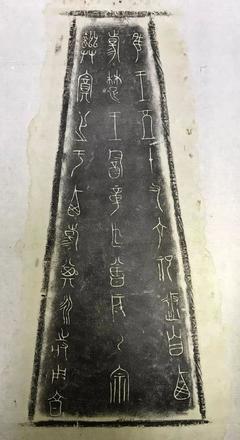 隹王五十又六祀返自西
昜楚王酓章乍曾侯乙宗
彝奠之于西昜其永用享